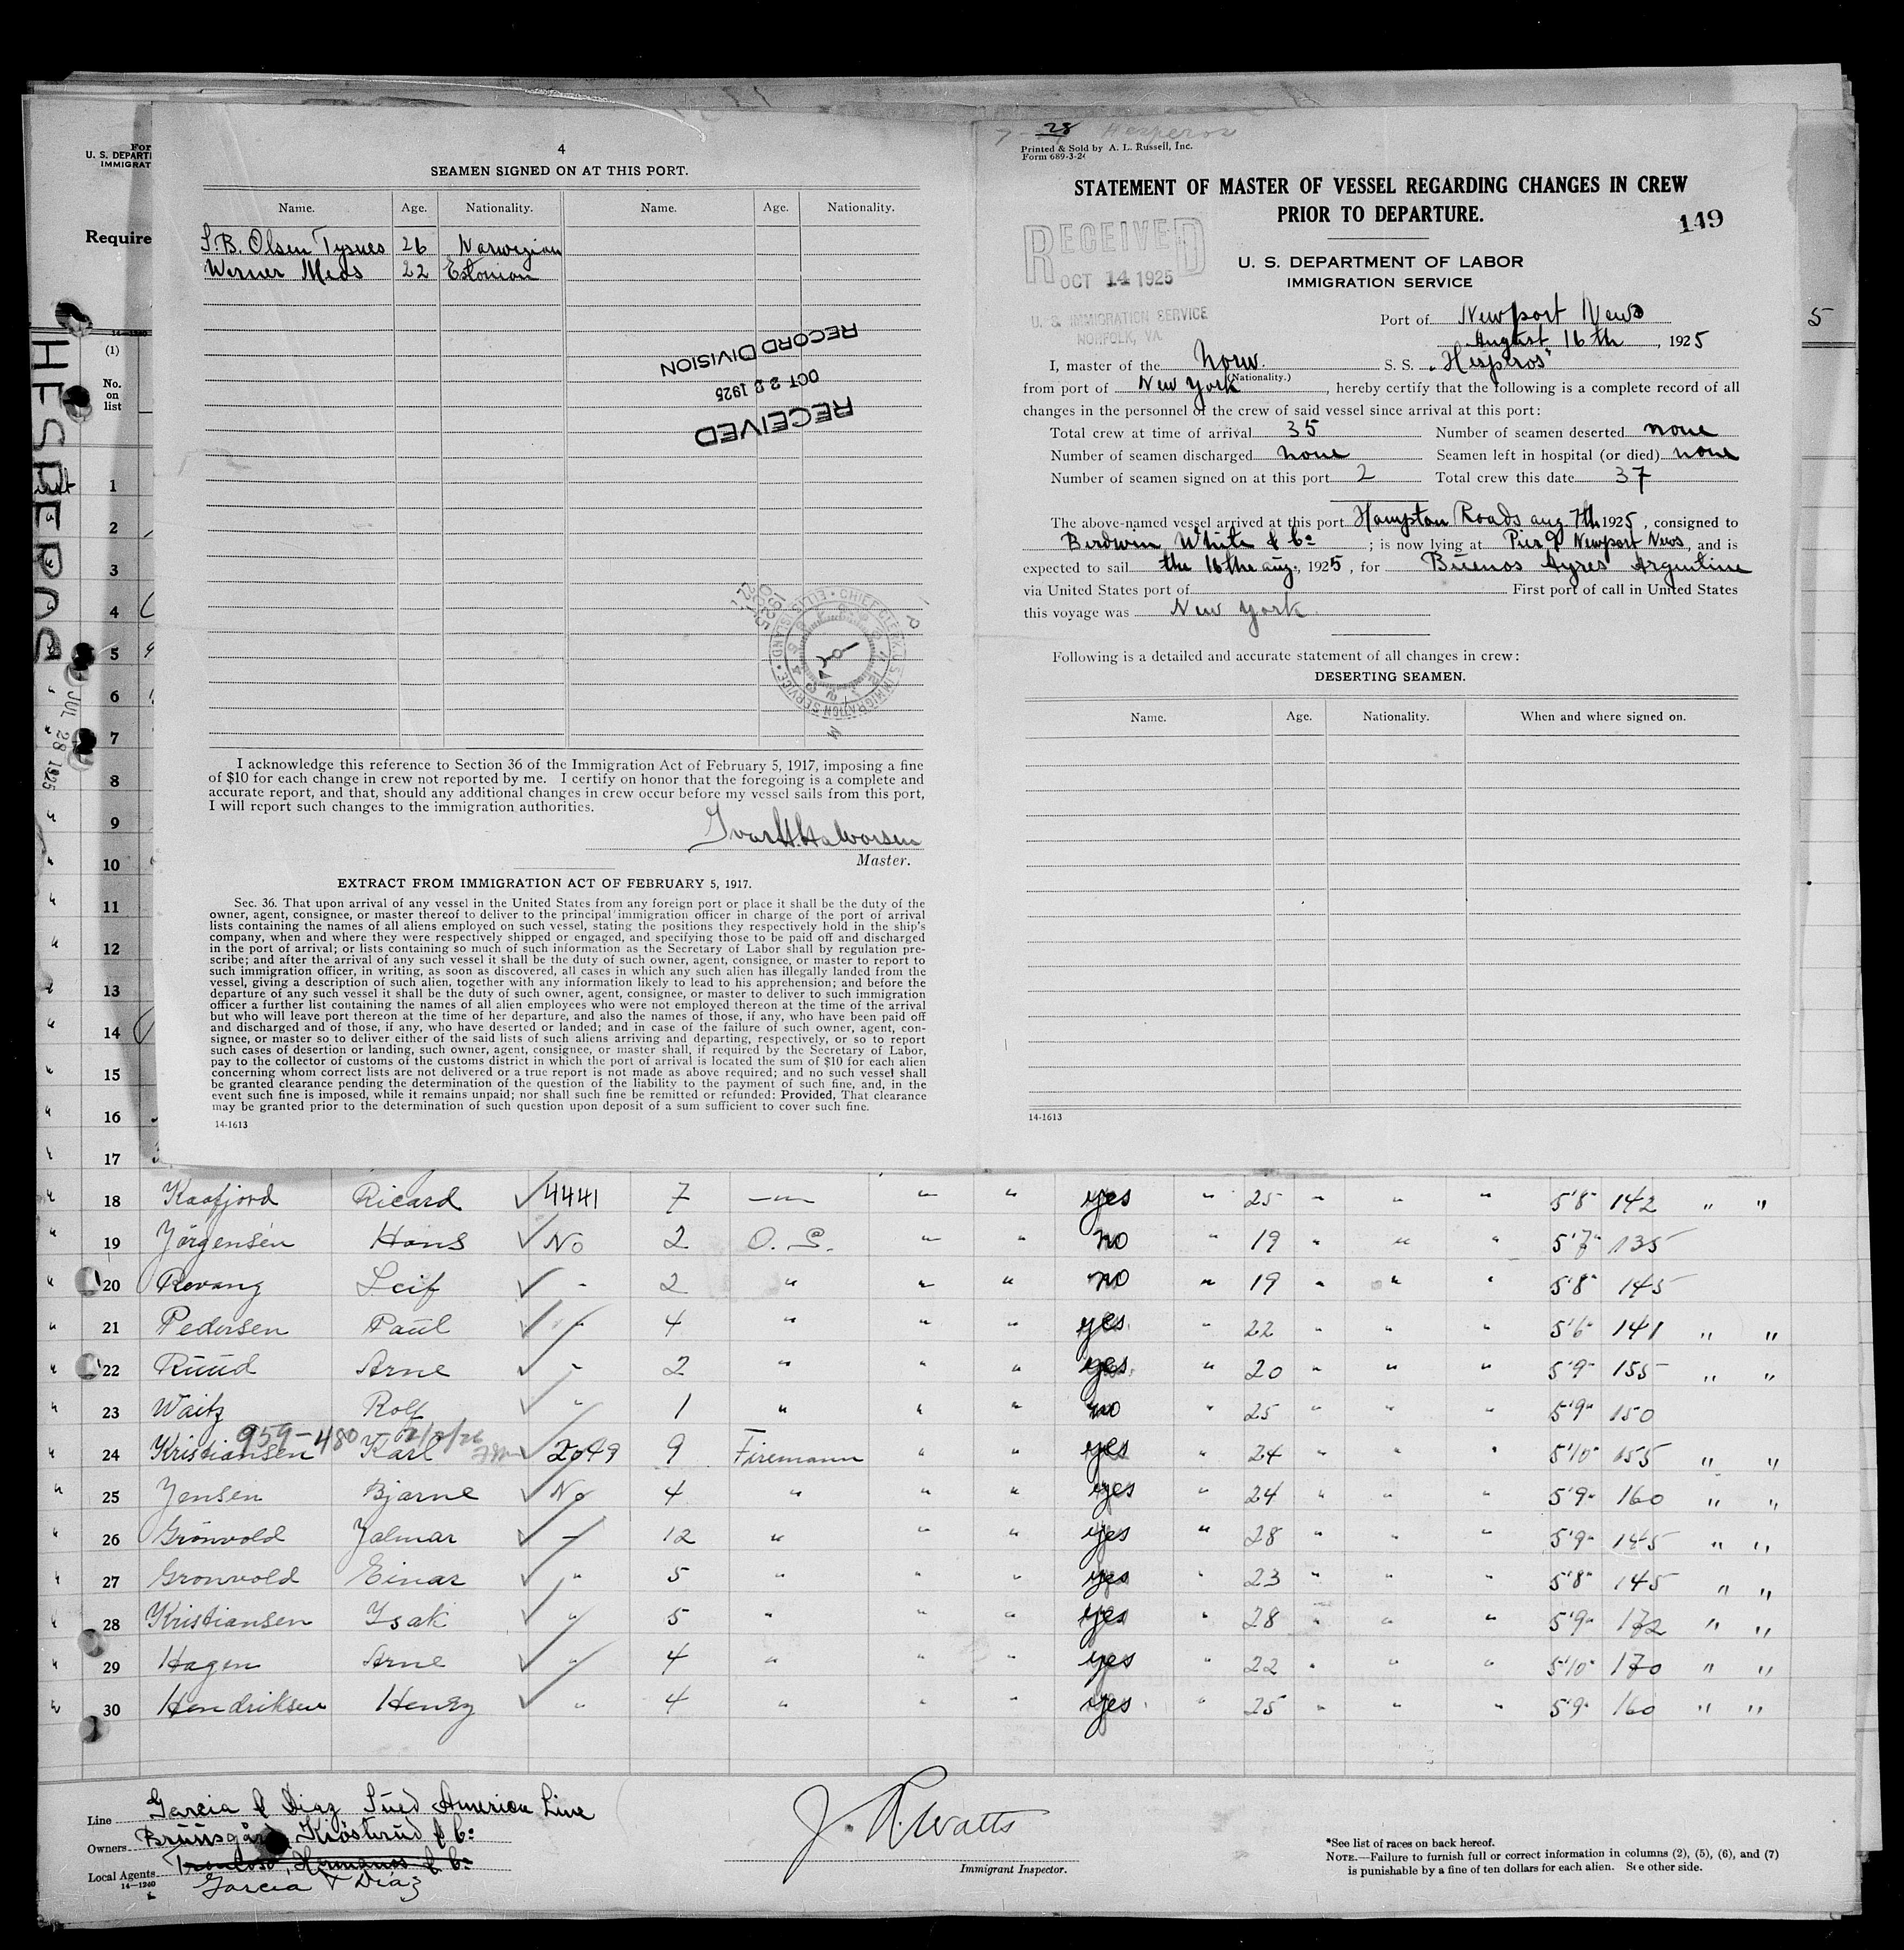 4
SEAMEN SIGNED ON AT THIS PORT.
Name. Age. Nationality. Name. Age. Nationality.
S.B. Olsen Tysnes 26 Norwegian
Werner Meos 22 Estonian
RECORD DIVISION
OCT 22 1925
RECEIVED
I acknowledge this reference to Section 36 of the Immigration Act of February 5, 1917, imposing a fine
of $10 for each change in crew not reported by me. I certify on honor that the foregoing is a complete and
accurate report, and that, should any additional changes in crew occur before my vessel sails from this port,
I will report such changes to the immigration authorities.
Ivar H. Halvorsen
Master.
EXTRACT FROM IMMIGRATION ACT OF FEBRUARY 5, 1917.
Sec. 36. That upon arrival of any vessel in the United States from any foreign port or place it shall be the duty of the
owner, agent, consignee, or master thereof to deliver to the principal immigration officer in charge of the port of arrival
lists containing the names of all aliens employed on such vessel, stating the positions they respectively hold in the ship's
company, when and where they were respectively shipped or engaged, and specifying those to be paid off and discharged
in the port of arrival; or lists containing so much of such information as the Secretary of Labor shall by regulation pre-
scribe; and after the arrival of any such vessel it shall be the duty of such owner, agent, consignee, or master to report to
such immigration officer, in writing, as soon as discovered, all cases in which any such alien has illegally landed from the
vessel, giving a description of such alien, together with any information likely to lead to his apprehension; and before the
departure of any such vessel it shall be the duty of such owner, agent, consignee, or master to deliver to such immigration
officer a further list containing the names of all alien employees who were not employed thereon at the time of the arrival
but who will leave port thereon at the time of her departure, and also the names of those, if any, who have been paid off
and discharged and of those, if any, who have deserted or landed; and in case of the failure of such owner, agent, con-
signee, or master so to deliver either of the said lists of such aliens arriving and departing, respectively, or so to report
such cases of desertion or landing, such owner, agent, consignee, or master shall, if required by the Secretary of Labor,
pay to the collector of customs of the customs district in which the port of arrival is located the sum of $10 for each alien
concerning whom correct lists are not delivered or a true report is not made as above required; and no such vessel shall
be granted clearance pending the determination of the question of the liability to the payment of such fine, and, in the
event such fine is imposed, while it remains unpaid; nor shall such fine be remitted or refunded: Provided, That clearance
may be granted prior to the determination of such question upon deposit of a sum sufficient to cover such fine.
14-1613
28 Hesperos
Printed & Sold by A. L. Russell, Inc.
Form 689-3-24
STATEMENT OF MASTER OF VESSEL REGARDING CHANGES IN CREW
PRIOR TO DEPARTURE.
149
RECEIVED
OCT 14 1925
U. S. IMMIGRATION SERVICE
NORFOLK, VA.
U. S. DEPARTMENT OF LABOR
IMMIGRATION SERVICE
Port of Newport News
August 16th, 1925
I, master of the Norw. S. S. "Hesperos"
(Nationality.)
from port of New York, hereby certify that the following is a complete record of all
changes in the personnel of the crew of said vessel since arrival at this port:
Total crew at time of arrival 35 Number of seamen deserted none
Number of seamen discharged none Seamen left in hospital (or died) none
Number of seamen signed on at this port 2 Total crew this date 37
The above-named vessel arrived at this port Hampton Roads aug. 7th 1925, consigned to
White & Co; is now lying at Pier 9 Newport News, and is
expected to sail the 16the aug., 1925, for Buenos Ayres Argentine
via United States port of First port of call in United States
this voyage was New York
Following is a detailed and accurate statement of all changes in crew:
DESERTING SEAMEN.
Name. Age. Nationality. When and where signed on.
14-1613
For
U. S. DEPARTI
IMMIGRAT
Require
5
HESPEROS
JUL 28 1925
(1)
No.
on
list
1
2
3
4
5
6
7
8
9
10
11
12
13
14
15
16
17
18 Kaafjord Ricard 4441 7 —"— " " yes " 25 " " " 5'8" 142 " "
19 Jørgensen Hans No 2 O. S. " " no " 19 " " " 5'7" 135
20 Revang Leif - 2 " " " no " 19 " " " 5'8" 145
21 Pedersen Paul " 4 " " " yes " 22 " " " 5'6" 141 " "
22 Ruud Arne - 2 " " " yes " 20 " " " 5'9" 155 " "
23 Waitz Rolf " 1 " " " no " 25 " " " 5'9" 150
959-480
24 Kristiansen Karl 2049 9 Firemann " " yes " 24 " " " 5'10" 155 " "
25 Jensen Bjarne No 4 " " " yes " 24 " " " 5'9" 160 " "
26 Grönvold Jalmar - 12 " " " yes " 28 " " " 5'9" 145 " "
27 Gronvold Einar " 5 " " " yes " 23 " " " 5'8" 145 " "
28 Kristiansen Ysak " 5 " " " yes " 28 " " " 5'9" 172 " "
29 Hagen Arne " 4 " " " yes " 22 " " " 5'10" 170 " "
30 Hendriksen Henry " 4 " " " yes " 25 " " " 5'9" 160 " "
Line Garcia & Diaz Sued America Line
Owners Bruusgård Kiøsterud & Co
Local Agents Hermanos & Co
14—1240
Garcia & Diaz
J. R. Watts
Immigrant Inspector.
*See list of races on back hereof.
NOTE.—Failure to furnish full or correct information in columns (2), (5), (6), and (7)
is punishable by a fine of ten dollars for each alien. See other side.